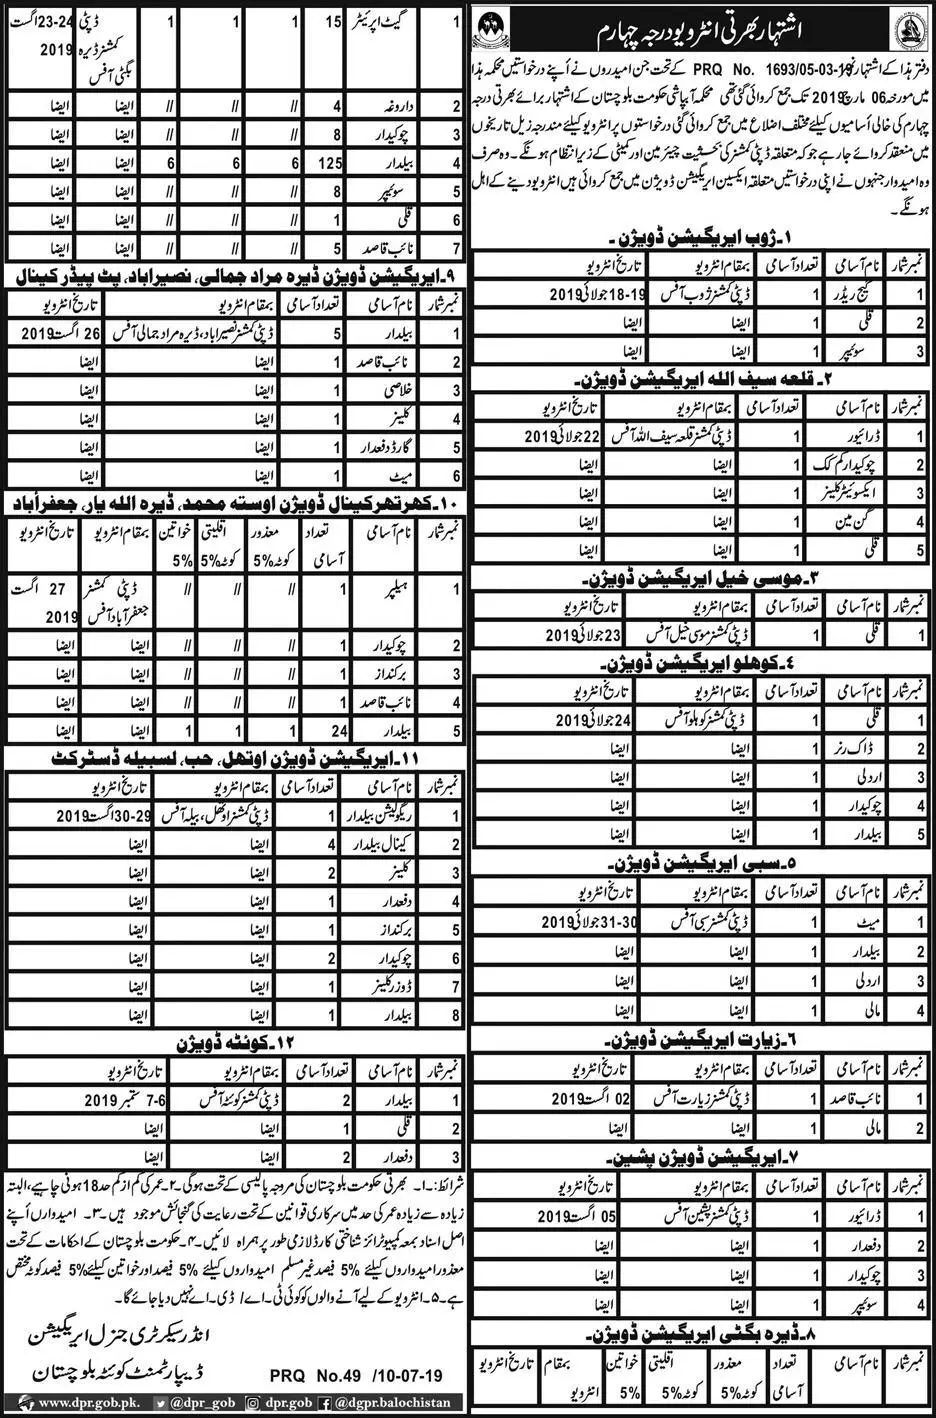 اشتہار بھرتی انٹرویو درجہ چہارم
دفتر ہذا کے اشتہار نمبر PRQ No. 1693/05-03-19 کے تحت جن امیدروں نے اپنے درخواستیں محکمہ ہذا
میں مورخہ 06 مارچ 2019 تک جمع کروائی گئی تھی محکمہ آبپاشی حکومت بلوچستان کے اشتہار برائے بھرتی درجہ
چہارم کی خالی آسامیوں کیلئے مختلف اضلاع میں جمع کروائی گئی درخواستوں پر انٹرویو کیلئے مندرجہ زیل تاریخوں
میں منعقد کروائے جا رہے جو کہ متعلقہ ڈپٹی کمشنر کی بحیثیت چیئرمین اور کمیٹی کے زیر انتظام ہونگے۔ وہ صرف
وہ امیدوار جنہوں نے اپنی درخواستیں متعلقہ ایکسین ایریگیشن ڈویژن میں جمع کروائی ہیں انٹرویو دینے کے اہل
ہونگے۔
۱۔ ژوب ایریگیشن ڈویژن۔
نمبرشمار نام آسامی تعداد آسامی بمقام انٹرویو تاریخ انٹرویو
1 گیج ریڈر 1 ڈپٹی کمشنر ژوب آفس 18-19 جولائی 2019
2 قلی 1 ایضا ایضا
3 سوئیپر 1 ایضا ایضا
۲۔ قلعہ سیف اللہ ایریگیشن ڈویژن۔
نمبرشمار نام آسامی تعداد آسامی بمقام انٹرویو تاریخ انٹرویو
1 ڈرائیور 1 ڈپٹی کمشنر قلعہ سیف اللہ آفس 22 جولائی 2019
2 چوکیدار کم کک 1 ایضا ایضا
3 ایکسویٹیر کلینر 1 ایضا ایضا
4 گن مین 1 ایضا ایضا
5 قلی 1 ایضا ایضا
۳۔ موسیٰ خیل ایریگیشن ڈویژن۔
نمبرشمار نام آسامی تعداد آسامی بمقام انٹرویو تاریخ انٹرویو
1 قلی 1 ڈپٹی کمشنر موسیٰ خیل آفس 23 جولائی 2019
۴۔ کوہلو ایریگیشن ڈویژن۔
نمبرشمار نام آسامی تعداد آسامی بمقام انٹرویو تاریخ انٹرویو
1 قلی 1 ڈپٹی کمشنر کوہلو آفس 24 جولائی 2019
2 ڈاک رنر 1 ایضا ایضا
3 اردلی 1 ایضا ایضا
4 چوکیدار 1 ایضا ایضا
5 بیلدار 1 ایضا ایضا
۵۔ سبی ایریگیشن ڈویژن۔
نمبرشمار نام آسامی تعداد آسامی بمقام انٹرویو تاریخ انٹرویو
1 میٹ 1 ڈپٹی کمشنر سبی آفس 30-31 جولائی 2019
2 بیلدار 1 ایضا ایضا
3 اردلی 1 ایضا ایضا
4 مالی 1 ایضا ایضا
۶۔ زیارت ایریگیشن ڈویژن۔
نمبرشمار نام آسامی تعداد آسامی بمقام انٹرویو تاریخ انٹرویو
1 نائب قاصد 1 ڈپٹی کمشنر زیارت آفس 02 اگست 2019
2 مالی 1 ایضا ایضا
۷۔ ایریگیشن ڈویژن پشین۔
نمبرشمار نام آسامی تعداد آسامی بمقام انٹرویو تاریخ انٹرویو
1 ڈرائیور 1 ڈپٹی کمشنر پشین آفس 05 اگست 2019
2 دفعدار 1 ایضا ایضا
3 چوکیدار 1 ایضا ایضا
4 سوئیپر 1 ایضا ایضا
۸۔ ڈیرہ بگٹی ایریگیشن ڈویژن۔
نمبرشمار نام آسامی تعداد آسامی معذور کوٹہ 5% اقلیتی کوٹہ 5% خواتین 5% بمقام انٹرویو تاریخ انٹرویو
1 گیٹ اپرئیٹر 15 1 1 1 ڈپٹی کمشنر ڈیرہ بگٹی آفس 23-24 اگست 2019
2 داروغہ 4 // // // ایضا ایضا
3 چوکیدار 8 // // // ایضا ایضا
4 بیلدار 125 6 6 6 ایضا ایضا
5 سوئیپر 8 // // // ایضا ایضا
6 قلی 1 // // // ایضا ایضا
7 نائب قاصد 5 // // // ایضا ایضا
۹۔ ایریگیشن ڈویژن ڈیرہ مراد جمالی، نصیر اباد، پٹ پیڈر کینال
نمبرشمار نام آسامی تعداد آسامی بمقام انٹرویو تاریخ انٹرویو
1 بیلدار 5 ڈپٹی کمشنر نصیر اباد، ڈیرہ مراد جمالی آفس 26 اگست 2019
2 نائب قاصد 1 ایضا ایضا
3 خلاصی 1 ایضا ایضا
4 کلینر 1 ایضا ایضا
5 گارڈ دفعدار 1 ایضا ایضا
6 میٹ 1 ایضا ایضا
۱۰۔ کھرتھر کینال ڈویژن اوستہ محمد، ڈیرہ اللہ یار، جعفر آباد
نمبرشمار نام آسامی تعداد آسامی معذور کوٹہ 5% اقلیتی کوٹہ 5% خواتین 5% بمقام انٹرویو تاریخ انٹرویو
1 ہیلپر 1 // // // ڈپٹی کمشنر جعفر آباد آفس 27 اگست 2019
2 چوکیدار 1 // // // ایضا ایضا
3 برکنداز 1 // // // ایضا ایضا
4 نائب قاصد 1 // // // ایضا ایضا
5 بیلدار 24 1 1 1 ایضا ایضا
۱۱۔ ایریگیشن ڈویژن اوتھل، حب، لسبیلہ ڈسٹرکٹ
نمبرشمار نام آسامی تعداد آسامی بمقام انٹرویو تاریخ انٹرویو
1 ریگولیشن بیلدار 1 ڈپٹی کمشنر اوتھل، بیلہ آفس 29-30 اگست 2019
2 کینال بیلدار 4 ایضا ایضا
3 کلینر 2 ایضا ایضا
4 دفعدار 1 ایضا ایضا
5 برکنداز 1 ایضا ایضا
6 چوکیدار 2 ایضا ایضا
7 ڈوزر کلینر 1 ایضا ایضا
8 بیلدار 1 ایضا ایضا
۱۲۔ کوئٹہ ڈویژن
نمبرشمار نام آسامی تعداد آسامی بمقام انٹرویو تاریخ انٹرویو
1 بیلدار 2 ڈپٹی کمشنر کوئٹہ آفس 6-7 ستمبر 2019
2 قلی 1 ایضا ایضا
3 دفعدار 2 ایضا ایضا
شرائط:۔ ۱۔ بھرتی حکومت بلوچستان کی مروجہ پالیسی کے تحت ہوگی۔ ۲۔ عمر کی کم از کم حد 18 ہونی چاہیے، البتہ
زیادہ سے زیادہ عمر کی حد میں سرکاری قوانین کے تحت رعایت کی گنجائش موجود ہیں۔ ۳۔ امیدوارں اپنے
اصل اسناد بمعہ کمپیوٹرائز شناختی کارڈ لازمی طور پر ہمراہ لائیں۔ ۴۔ حکومت بلوچستان کے احکامات کے تحت
معذور امیدواروں کیلئے 5% فیصد غیر مسلم امیدواروں کیلئے 5% فیصد اور خواتین کیلئے 5% فیصد کوٹہ مختص
ہے۔ ۵۔ انٹرویو کے لیے آنے والوں کو کوئی ٹی۔ اے / ڈی۔ اے نہیں دیا جائے گا۔
انڈر سیکرٹری جنرل ایریگیشن
ڈیپارٹمنٹ کوئٹہ بلوچستان
PRQ No.49 /10-07-19
www.dpr.gob.pk. @dpr_gob dpr.gob @dgpr.balochistan